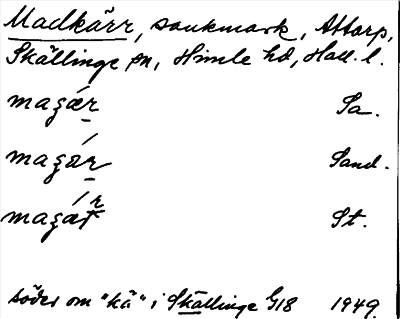 Madkärr, sankmark, Attorp,
Skällinge sn, Himle hd, Hall. l.
magær Sa.
magár Sand.
magáꞃ́ St.
söder om "kä" i Skällinge G18 1949.